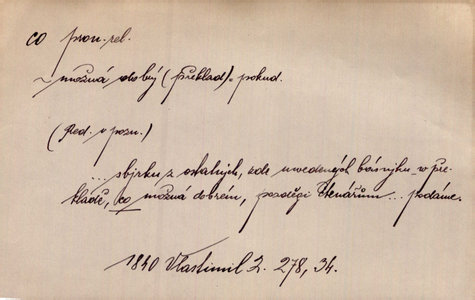 co pron. rel.
~ možná dobrý (překlad) = pokud.
(Red. v pozn.)
... sbírku z ostalných, zde uvedených básníků w pře-
kladě, co možná dobrém, pozděgi čtenářům ... podáme.
1840 Vlastimil 2. 278, 34.